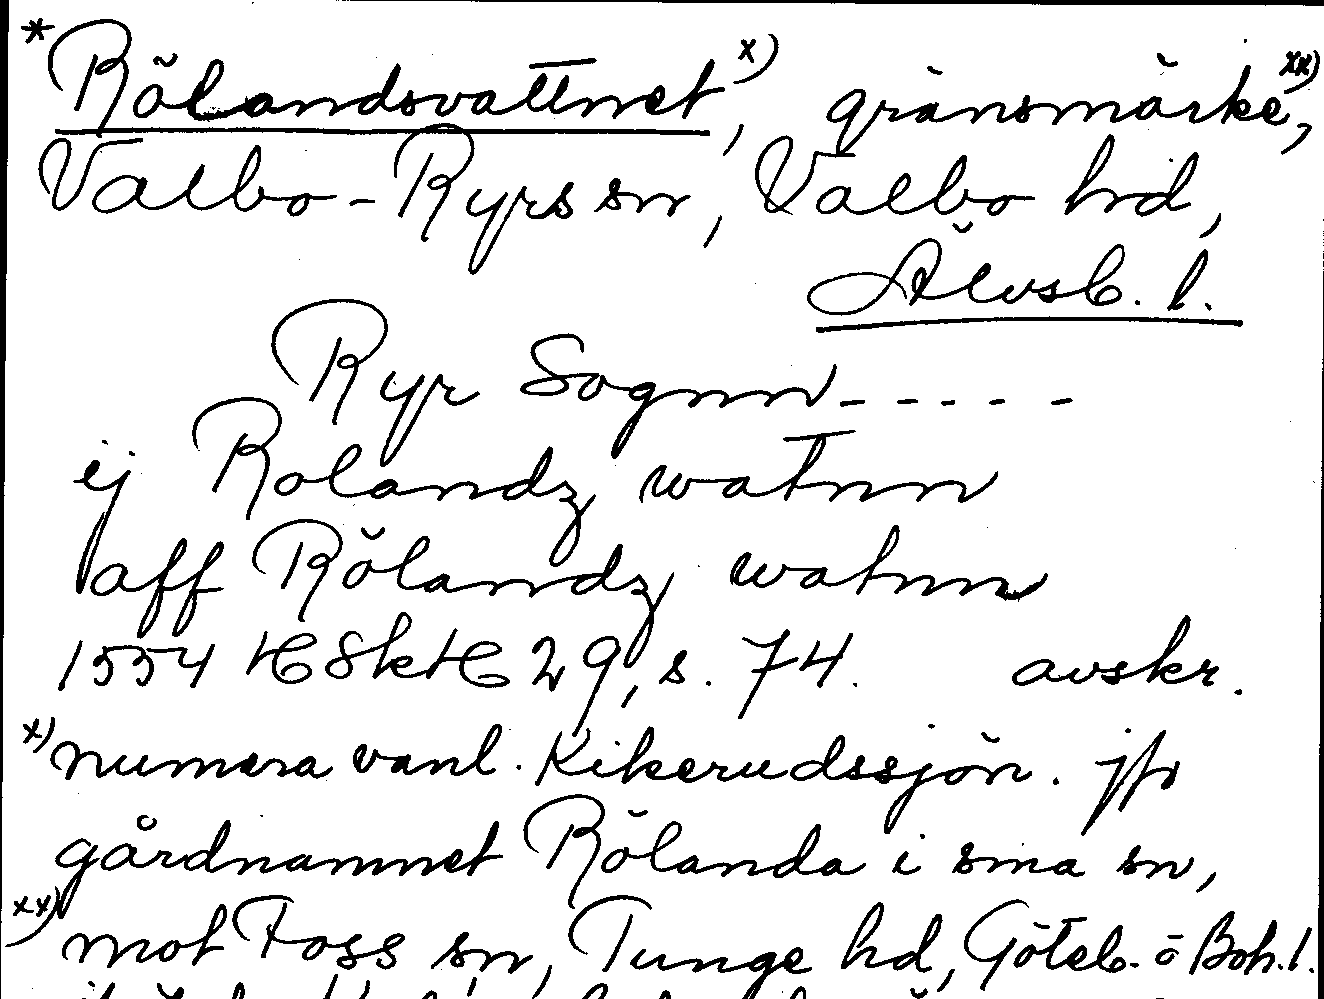 * Rölandsvattnet x), gränsmärke, xx)
Valbo-Ryrs sn, Valbo hd,
Älvsb. l.
Ryr Sognn - - - - -
ej Rolandz watnn
aff Rölandz watnn
1554 HSkH 29, s. 74. avskr.
x) numera vanl. Kikerudssjön. jfr
gårdnamnet Rölanda i sma sn,
xx) mot Foss sn, Tunge hd, Göteb. o Boh. l.